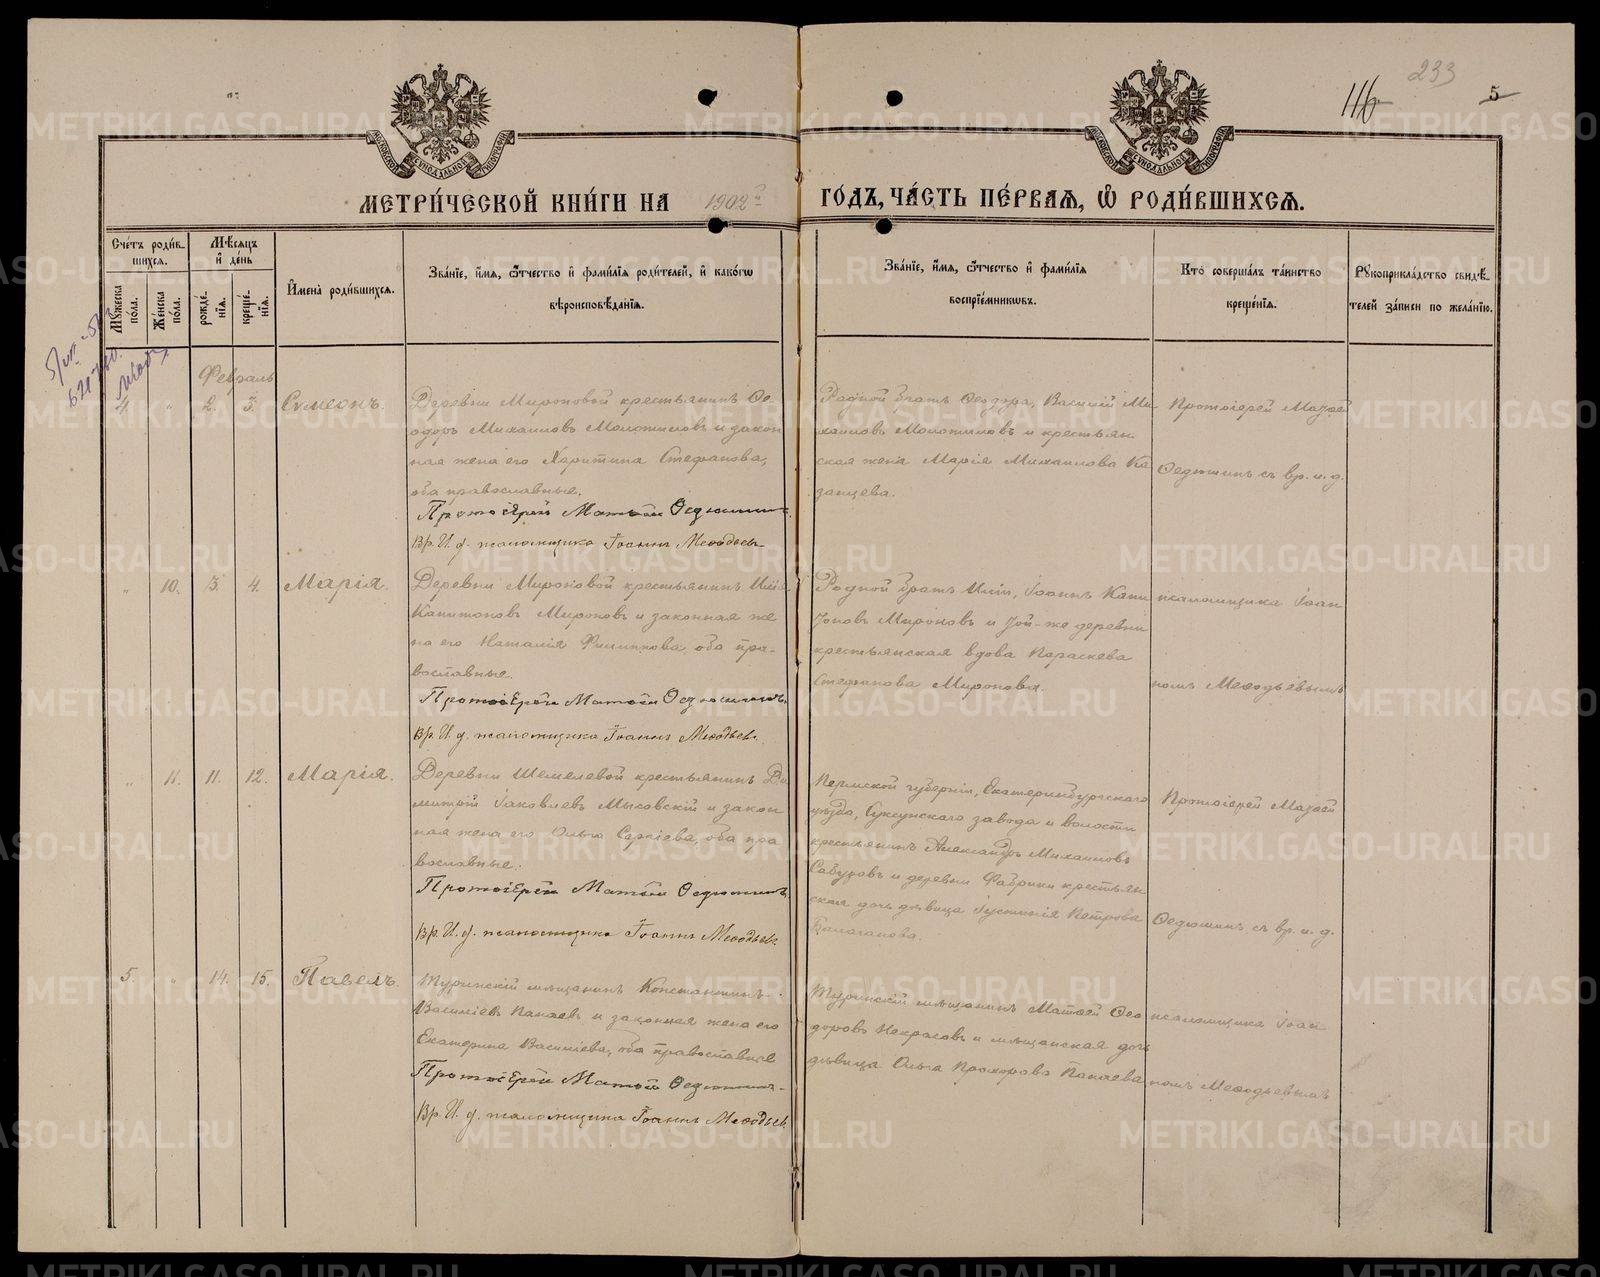 233
116
5
МЕТРИ́ЧЕСКОЙ КНИ́ГИ НА 1902й ГОДЪ, ЧА́СТЬ ПЕ́РВАѦ, Ѽ РОДИ́ВШИХСѦ.
Сче́тъ роди́в-
шихсѧ.
Мꙋжеска по́ла.
Же́нска по́ла.
Мѣ́сѧцъ и҆ де́нь
рожде́-нїѧ.
креще́-нїѧ.
И҆мена̀ роди́вшихсѧ.
Зва́нїе, и҆́мѧ, ѻ҆́тчество и҆ фами́лїѧ роди́телей, и҆ како́гѡ
вѣроисповѣ́данїѧ.
Зва́нїе, и҆́мѧ, ѻ҆́тчество и҆ фами́лїѧ
воспрїе́мникѡвъ.
Кто̀ соверша́лъ та́инство
креще́нїѧ.
Рꙋкоприкла́дство свидѣ́-
телей за́писи по жела́нїю.
Февраль
4. " 2. 3. Сѵмеонъ.
Деревни Мироновой крестьянинъ Ѳе-
одоръ Михаиловъ Молотиловъ и закон
ная жена его Харитина Стефанова,
оба православные.
Протоіерей Матѳей Ѳедюшинъ
Вр. И. д. псаломщика Іоаннъ Меѳодьевъ
Родной братъ Ѳеодора, Василій Ми-
хаиловъ Молотиловъ и крестьян
ская жена Марія Михаилова Ка
занцева.
Протоіерей Матѳей
Ѳедюшинъ съ вр. и. д.
" 10. 3. 4. Марія.
Деревни Мироновой крестьянинъ Илія
Капитоновъ Мироновъ и законная же
на его Наталія Филиппова, оба пра-
вославные.
Протоіерей Матѳей Ѳедюшинъ
Вр. И. д. псаломщика Іоаннъ Меѳодьевъ.
Родной братъ Иліи, Іоаннъ Капи
тоновъ Мироновъ и той-же деревни
крестьянская вдова Параскева
Стефанова Миронова.
псаломщика Іоан
номъ Меѳодьевымъ
" 11. 11. 12. Марія.
Деревни Шемелевой крестьянинъ Ди
митрій Іаковлевъ Мысовскій и закон
ная жена его Ольга Сергіева, оба пра
вославные.
Протоіерей Матѳей Ѳедюшинъ
Вр. И. д. псаломщика Іоаннъ Меѳодьевъ
Пермской губерніи, Екатеринбургскаго
уѣзда, Суксунскаго завода и волости
крестьянинъ Александръ Михаиловъ
Сабуровъ и деревни Фабрики крестьян
ская дочь дѣвица Іустинія Петрова
Балаганова.
Протоіерей Матѳей
Ѳедюшинъ съ вр. и. д.
5. " 14. 15. Павелъ.
Туринскій мѣщанинъ Константинъ
Василіевъ Панаевъ и законная жена его
Екатерина Василіева, оба православные
Протоіерей Матѳей Ѳедюшинъ
Вр. И. д. псаломщика Іоаннъ Меѳодьевъ
Туринскій мѣщанинъ Матѳей Ѳео
доровъ Некрасовъ и мѣщанская дочь
дѣвица Ольга Прохорова Панаева
псаломщика Іоан
номъ Меѳодьевымъ
METRIKI.GASO-URAL.RU